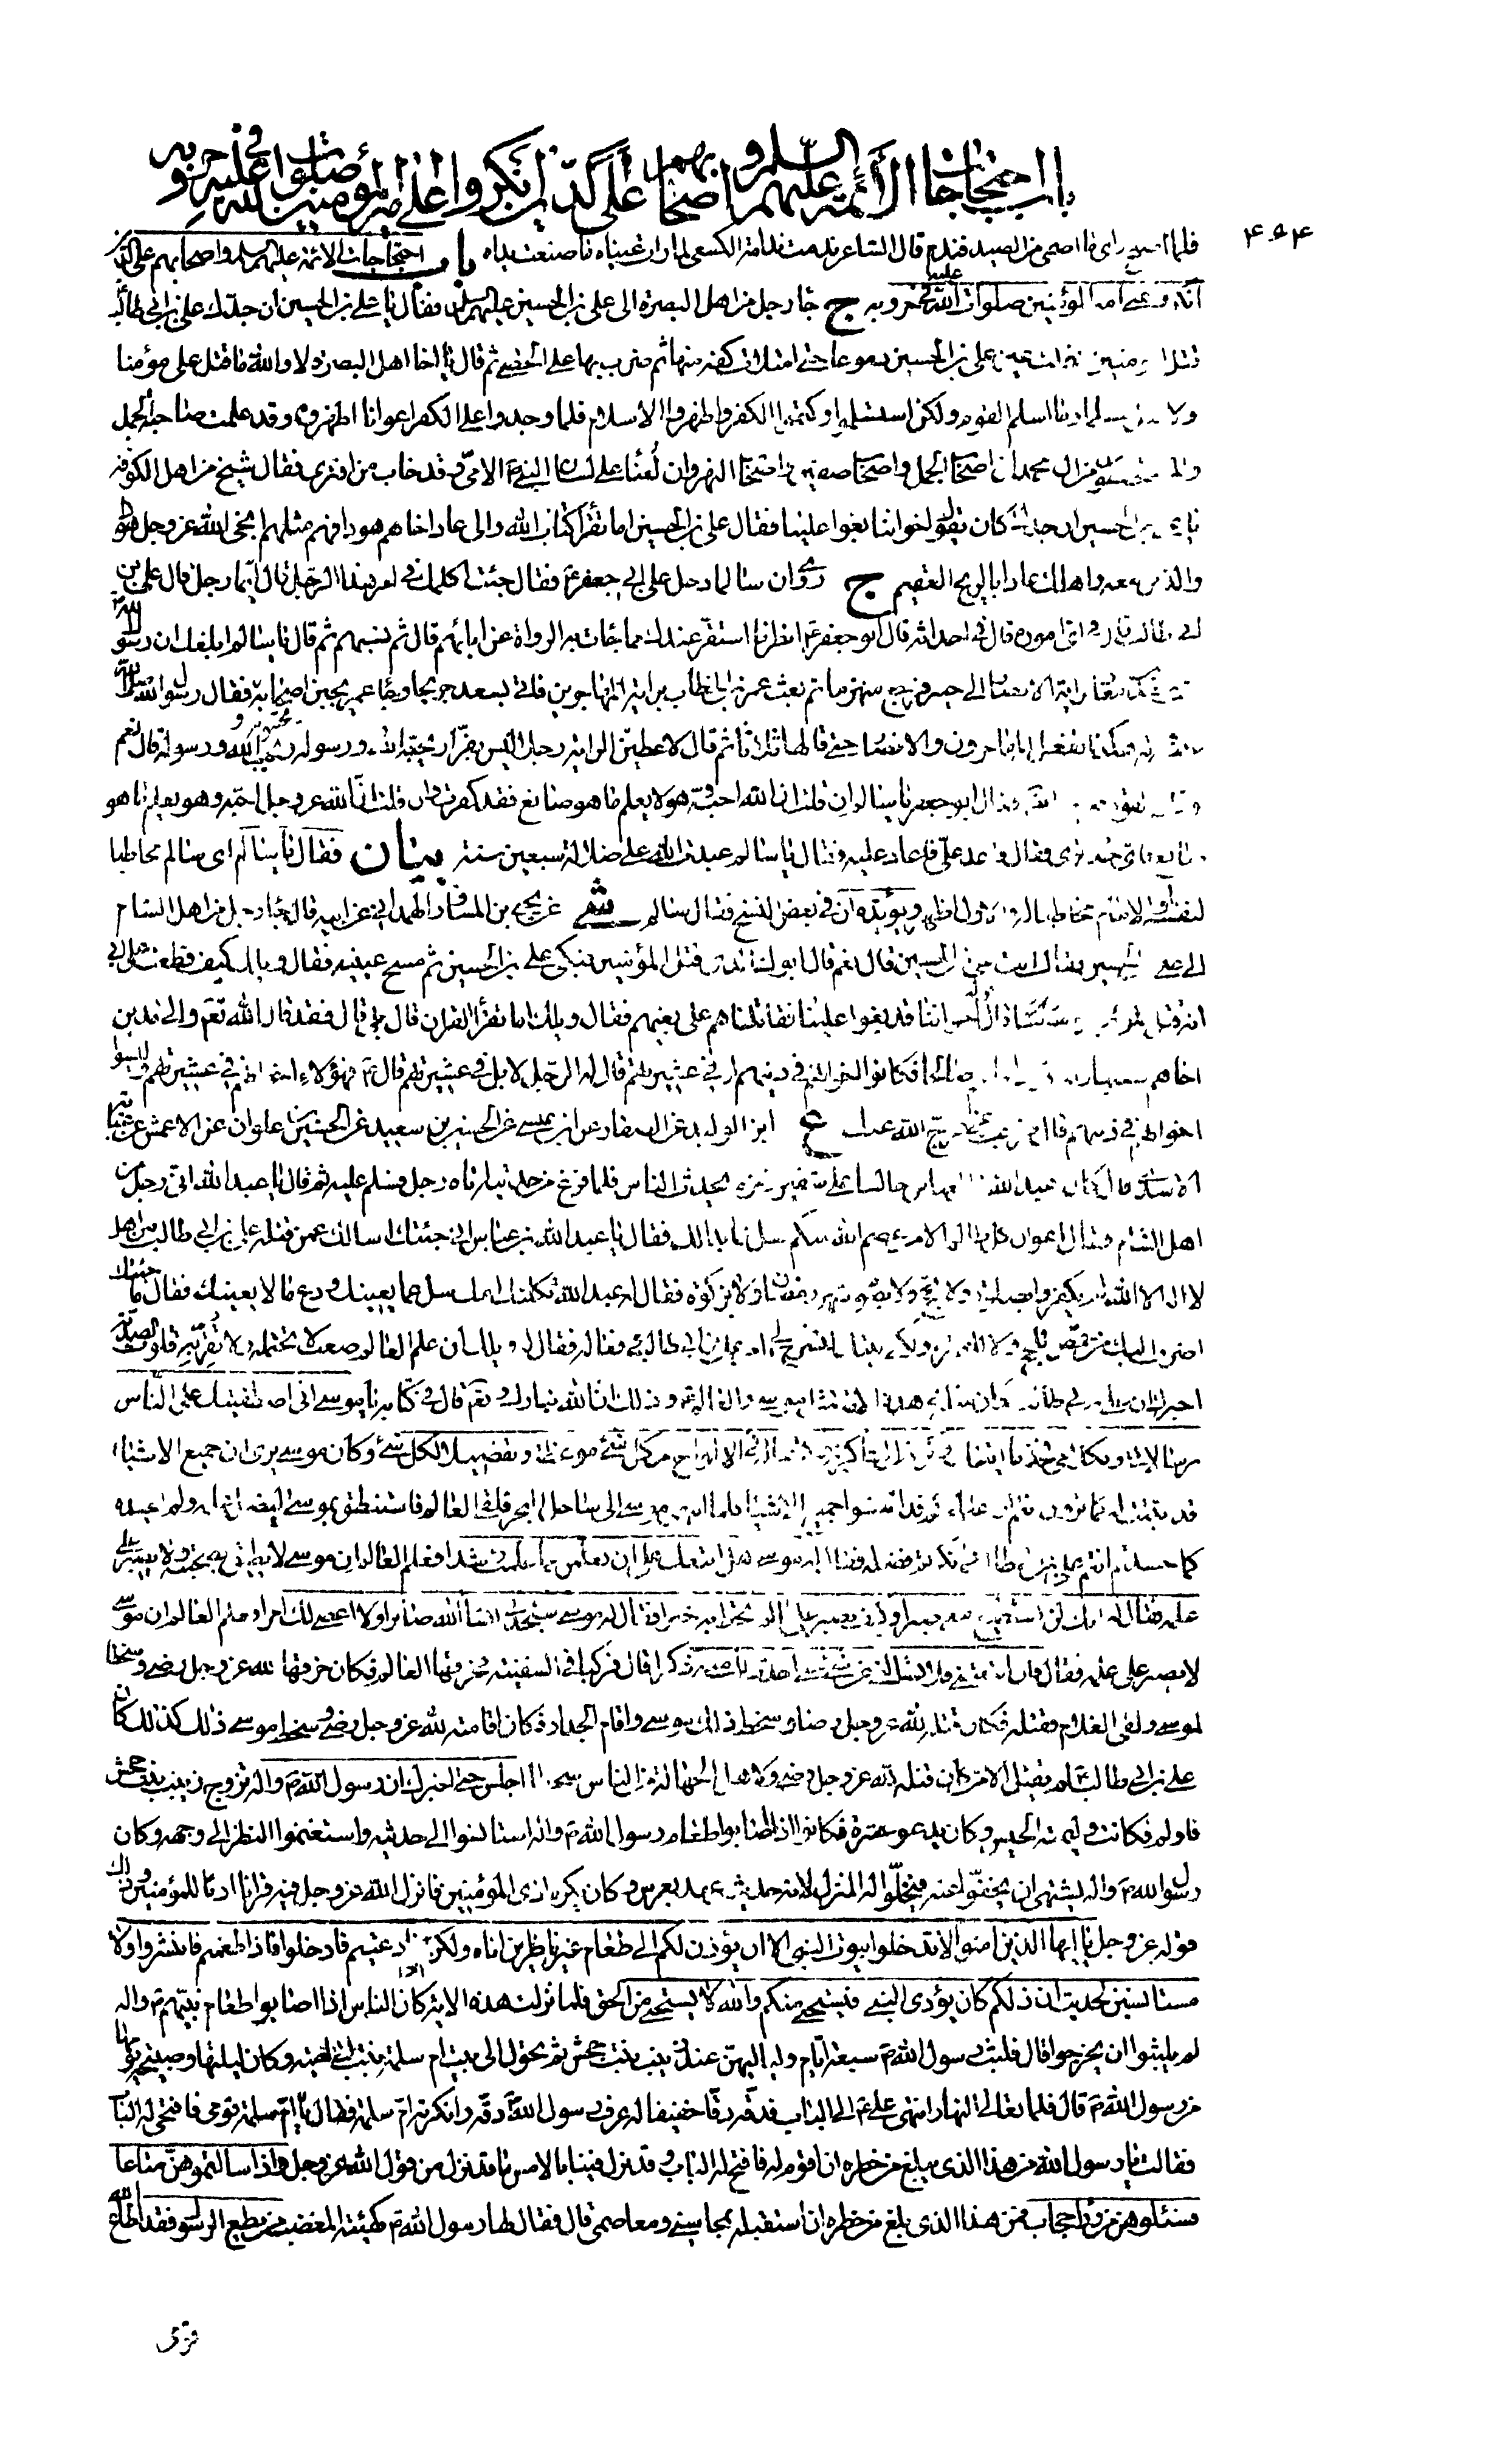 باب احتجاجات الأئمة عليهم السلم و اصحابهم على الذين انكروا على امير المؤمنين صلوات الله عليه في حروبه
۴۵۴
فلما اصبح راى ما اصمى من الصيد فندم قال الشاعر ندمت ندامة الكسعى لما رات عيناه ما صنعت يداه باب احتجاجات الائمة عليهم السلم و اصحابهم على الذين
انكروا على امير المؤمنين صلوات الله عليه في حروبه ج جاء رجل من اهل البصرة الى على بن الحسين عليهم السلم فقال يا على بن الحسين ان جدك على بن ابي طالب
قتل المؤمنين على بن الحسين دموعا حتى امتلات كفه منها ثم ضرب بها على الحصى ثم قال يا اخا اهل البصرة لا والله ما قتل على مؤمنا
ولا اسلم القوم ولكن استسلموا و كتموا الكفر و اظهروا الاسلام فلما وجدوا على الكفر اعوانا اظهروه و قد علمت صاحبة الجمل
ال محمد ان اصحاب الجمل و اصحاب صفين و اصحاب النهروان لعنوا على لسان النبي الامى و قد خاب من افترى فقال شيخ من اهل الكوفة
يا على بن الحسين ان جدك كان يقول اخواننا بغوا علينا فقال على بن الحسين اما تقرأ كتاب الله والى عاد اخاهم هودا فهم مثلهم انجى الله عز وجل هودا
والذين معه و اهلك عادا بالريح العقيم ج روى ان سالما دخل على ابي جعفر فقال جئت اكلمك في امر هذا الرجل قال ايما رجل قال على بن
ابي طالب قال في اى اموره قال في احداثه قال ابو جعفر انظر ما استقر عندك مما جاءت به الرواة عن ابائهم قال ثم نسبهم ثم قال يا سالم ابلغك ان رسول الله
الانصار الى خيبر فرجع منهزما ثم بعث عمر بن الخطاب براية المهاجرين فاتى بسعد جريحا و جاء عمر يجبن اصحابه فقال رسول الله
هكذا تفعل المهاجرون والانصار حتى قالها ثلاثا ثم قال لاعطين الراية رجلا ليس بفرار يحبه الله و رسوله و يحب الله و رسوله قال نعم
ابو جعفر يا سالم ان قلت ان الله احبه و هو لا يعلم ما هو صانع فقد كفرت و ان قلت ان الله عز وجل احبه و هو يعلم ما هو
صانع فقال فاعد على فاعاد عليه فقال يا سالم عبدت الله على ضلالة سبعين سنة بيان فقال يا سالم اى سالم مخاطبا
لنفسه و يؤيده ان في بعض النسخ فقال سالم شى عن يحيى بن المساور الهمداني عن ابيه قال جاء رجل من اهل الشام
الى على بن الحسين فقال انت على بن الحسين قال نعم قال ابوك الذى قتل المؤمنين فبكى على بن الحسين ثم مسح عينيه فقال ويلك كيف قطعت على ابي
انه قتل المؤمنين قال قوله اخواننا قد بغوا علينا فقاتلناهم على بغيهم فقال ويلك اما تقرأ القران قال بلى قال فقد قال الله تعم والى مدين
اخاهم شعيبا افكانوا اخوانهم في دينهم او في عشيرتهم قال له الرجل لا بل في عشيرتهم قال فهؤلاء اخوانهم في عشيرتهم و ليسوا
اخوانهم في دينهم قال فرجت عنى فرج الله عنك ع ابن الوليد عن الصفار عن ابن عيسى عن الحسين بن سعيد عن الحسين بن علوان عن الاعمش عن عباية
الاسدى قال كان عبد الله بن عباس جالسا على شفير زمزم يحدث الناس فلما فرغ من حديثه اتاه رجل فسلم عليه ثم قال يا عبد الله انى رجل من
اهل الشام فقال اعوان كل ظالم الا من عصم الله منكم سل عما بدا لك فقال يا عبد الله بن عباس انى جئتك اسالك عمن قتله على بن ابي طالب من اهل
لا اله الا الله لم يكفروا بصلوة ولا بحج ولا بصوم شهر رمضان ولا بزكوة فقال له عبد الله ثكلتك امك سل عما يعنيك و دع ما لا يعنيك فقال ما جئتك
فقال له ويلك ان علم العالم صعب لا تحتمله ولا تقر به قلوب الصدئة
اخبرك ان على بن ابي طالب كان مثله في هذه الامة كمثل موسى والعالم و ذلك ان الله تبارك و تعم قال في كتابه يا موسى انى اصطفيتك على الناس
برسالاتى و بكلامى فخذ ما اتيتك و كن من الشاكرين و كتبنا له في الالواح من كل شئ موعظة و تفصيلا لكل شئ و كان موسى يرى ان جميع الاشياء
قد اثبتت له كما ترون انتم ان علماءكم قد اثبتوا جميع الاشياء فلما انتهى موسى الى ساحل البحر فلقى العالم فاستنطق بموسى ليضل علمه ولم يحسده
كما حسدتم انتم على بن ابي طالب و انكرتم فضله فقال له موسى هل اتبعك على ان تعلمن مما علمت رشدا فعلم العالم ان موسى لا يطيق بصحبته ولا يصبر على
علمه فقال له انك لن تستطيع معى صبرا و كيف تصبر على ما لم تحط به خبرا فقال له موسى ستجدنى انشا الله صابرا ولا اعصى لك امرا فعلم العالم ان موسى
لا يصبر على علمه فقال فان اتبعتنى فلا تسئلنى عن شئ حتى احدث لك منه ذكرا قال فركبا في السفينة فخرقها العالم فكان خرقها لله عز وجل رضى و سخطا
لموسى و لقى الغلام فقتله فكان قتله لله عز وجل رضا و سخط ذلك موسى و اقام الجدار فكان اقامته لله عز وجل رضى و سخط موسى ذلك كذلك كان
على بن ابي طالب لم يقتل الا من كان قتله لله عز وجل رضى ولاهل الجهالة من الناس سخطا اجلس حتى اخبرك ان رسول الله ص واله تزوج زينب بنت جحش
فاولم فكانت وليمته الحيس و كان يدعو عشرة فكانوا اذا اصابوا طعام رسول الله ص واله استانسوا الى حديثه و استغنموا النظر الى وجهه و كان
رسول الله ص واله يشتهى ان يخففوا عنه فيخلوا له المنزل لانه حديث عهد بعرس و كان يكره اذى المؤمنين فانزل الله عز وجل فيه قرانا ادبا للمؤمنين و ذلك
قوله عز وجل يا ايها الذين امنوا لا تدخلوا بيوت النبى الا ان يؤذن لكم الى طعام غير ناظرين اناه ولكن اذا دعيتم فادخلوا فاذا طعمتم فانتشروا ولا
مستانسين لحديث ان ذلكم كان يؤذى النبى فيستحيى منكم والله لا يستحيى من الحق فلما نزلت هذه الاية كان الناس اذا اصابوا طعام نبيهم ص واله
لم يلبثوا ان يخرجوا قال فلبث رسول الله ص سبعة ايام و لياليهن عند زينب بنت جحش ثم تحول الى بيت ام سلمة بنت ابي امية و كان ليلتها و صبيحة يومها
من رسول الله ص قال فلما تعالى النهار انتهى على ع الى الباب فدقه دقا خفيفا له عرف رسول الله ص دقه و انكرته ام سلمة فقال يا ام سلمة قومى فافتحى له الباب
فقالت يا رسول الله من هذا الذى يبلغ من خطره ان اقوم له فافتح له الباب و قد نزل فينا بالامس ما قد نزل من قول الله عز وجل و اذا سالتموهن متاعا
فسئلوهن من وراء حجاب فمن هذا الذى بلغ من خطره ان استقبله بمحاسنى و معاصمى قال فقال لها رسول الله ص كهيئة المغضب من يطع الرسول فقد اطاع الله
قومى